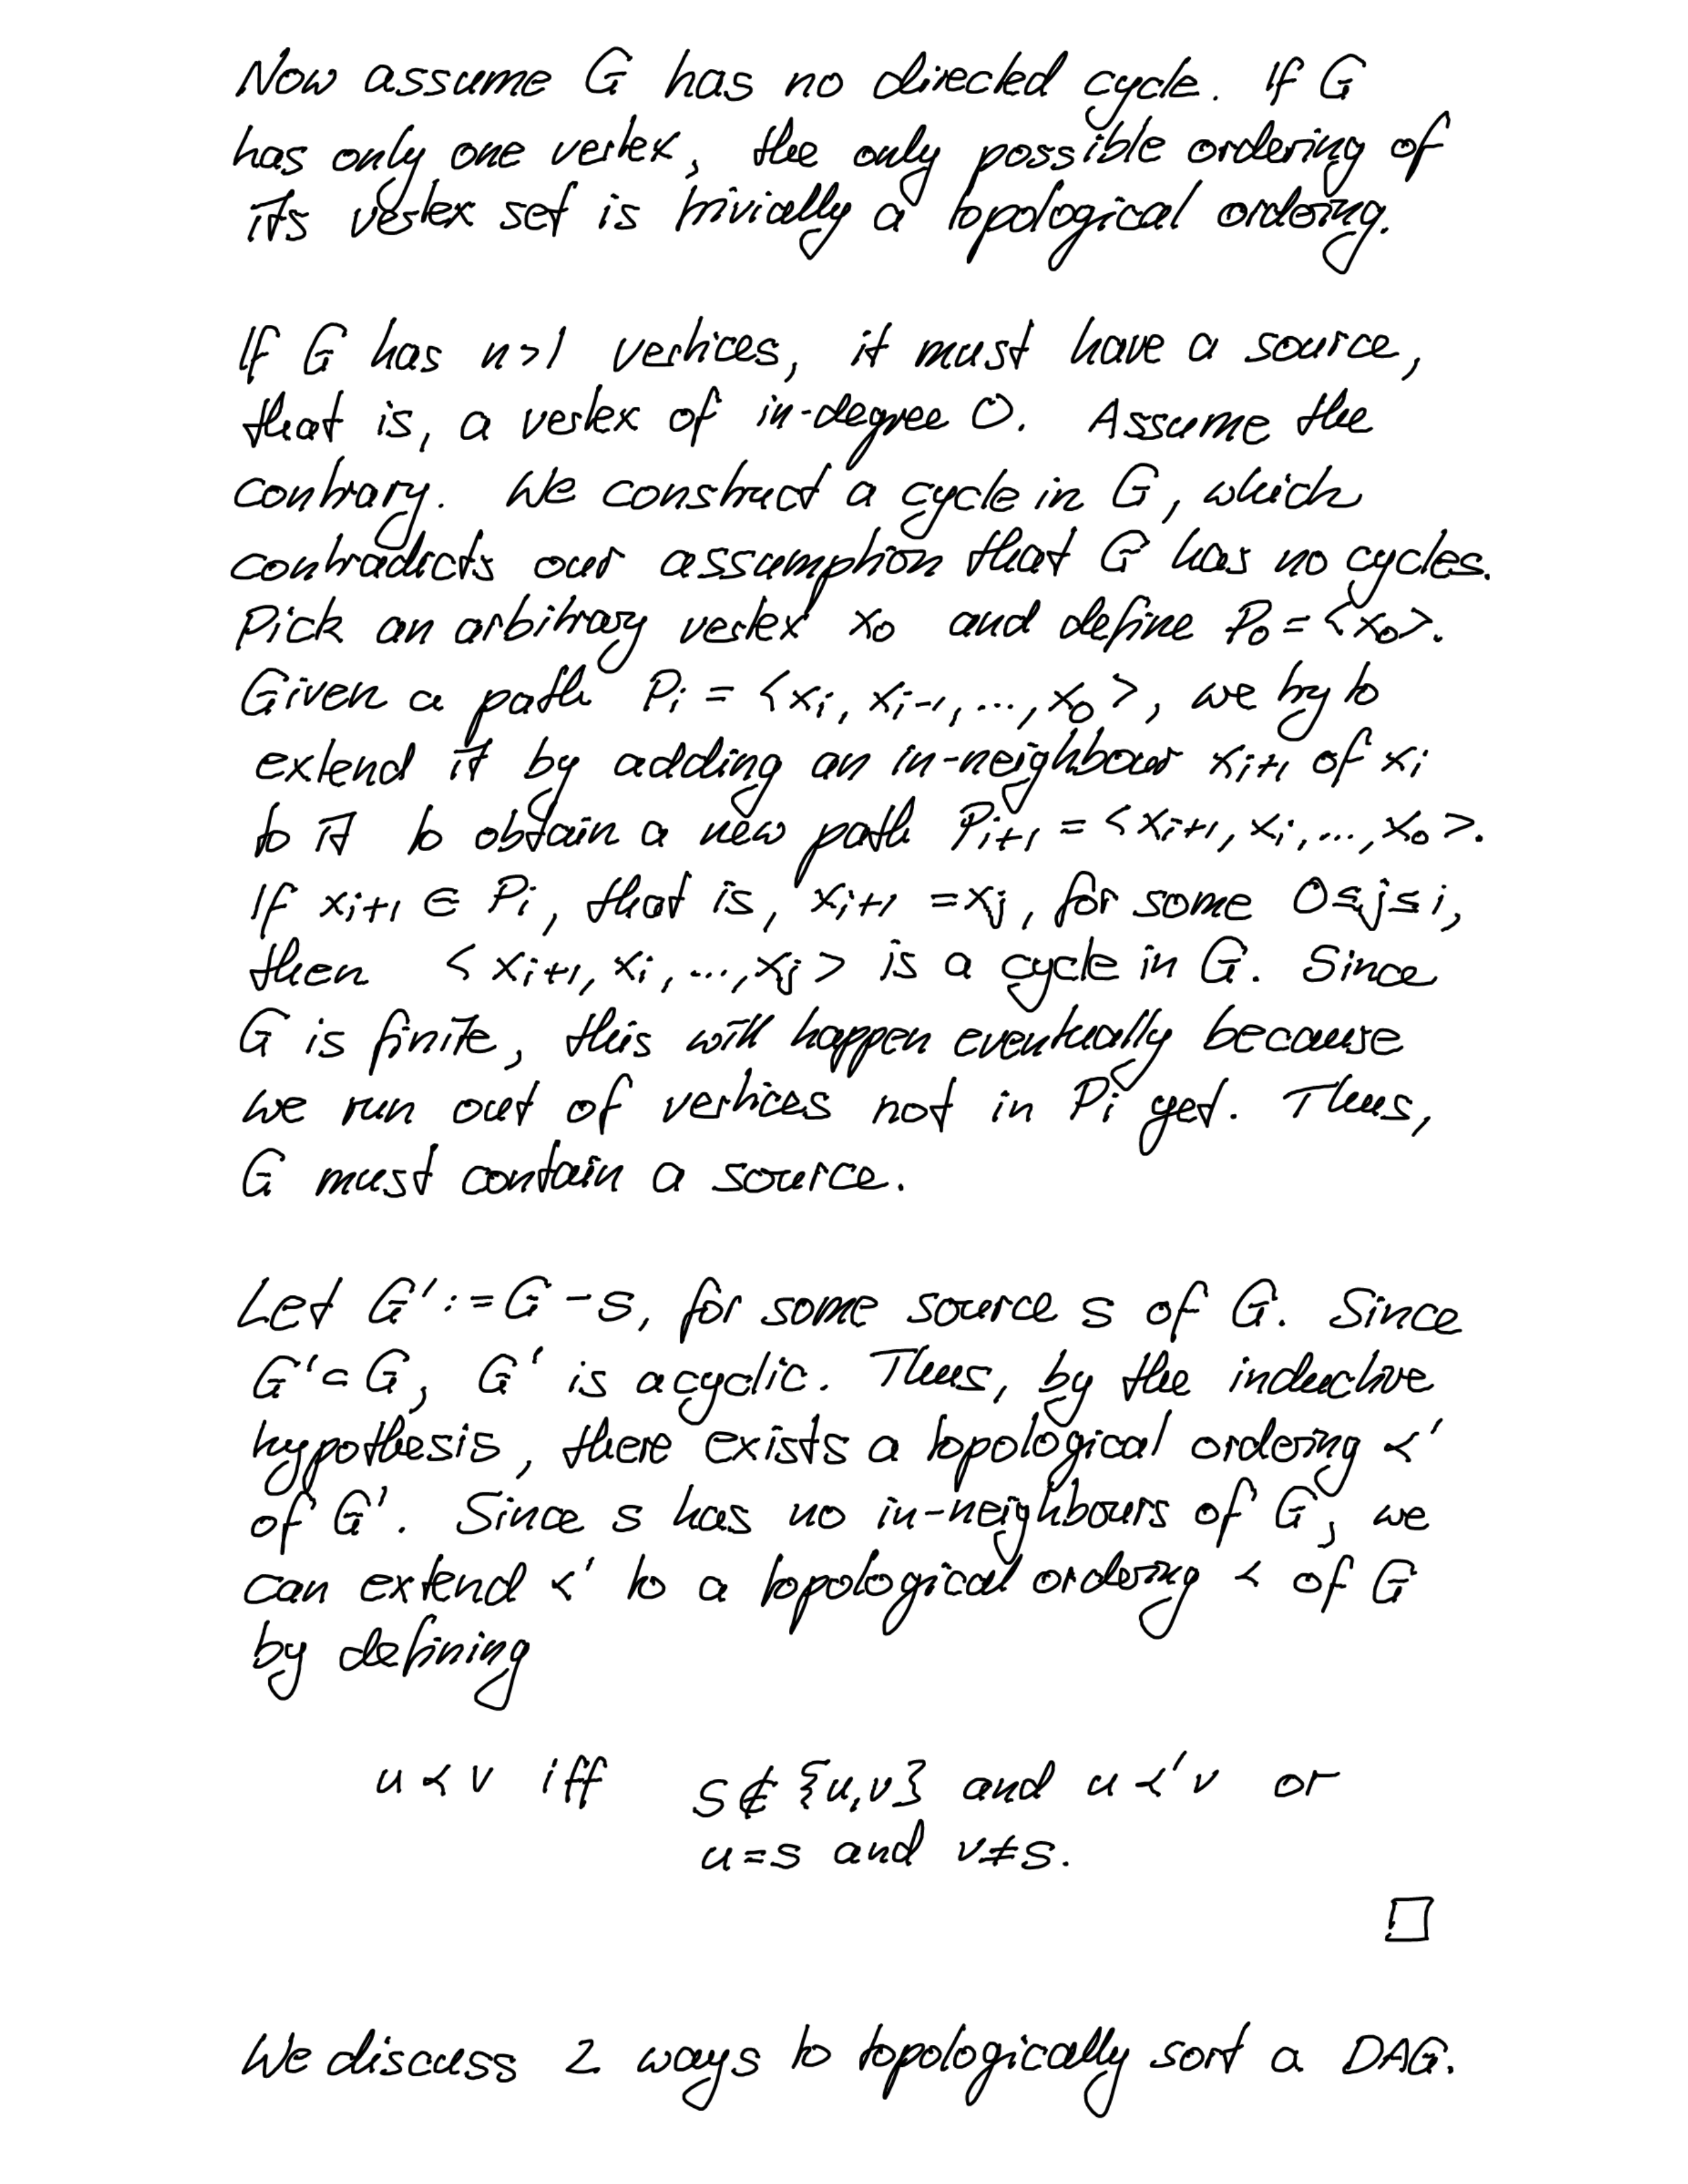 Now assume G has no directed cycle. If G
has only one vertex, the only possible ordering of
its vertex set is trivially a topological ordering.
If G has n>1 vertices, it must have a source,
that is, a vertex of in-degree 0. Assume the
contrary. We construct a cycle in G, which
contradicts our assumption that G has no cycles.
Pick an arbitrary vertex x₀ and define P₀ = <x₀>.
Given a path Pᵢ = <xᵢ, xᵢ₋₁, ..., x₀>, we try to
extend it by adding an in-neighbour xᵢ₊₁ of xᵢ
to it to obtain a new path Pᵢ₊₁ = <xᵢ₊₁, xᵢ, ..., x₀>.
If xᵢ₊₁ ∈ Pᵢ, that is, xᵢ₊₁ = xⱼ, for some 0≤j≤i,
then <xᵢ₊₁, xᵢ, ..., xⱼ> is a cycle in G. Since
G is finite, this will happen eventually because
we run out of vertices not in Pᵢ yet. Thus,
G must contain a source.
Let G' := G - s, for some source s of G. Since
G' ⊂ G, G' is acyclic. Thus, by the inductive
hypothesis, there exists a topological ordering ≺'
of G'. Since s has no in-neighbours of G, we
can extend ≺' to a topological ordering ≺ of G
by defining
u ≺ v iff s ∉ {u,v} and u ≺' v or
u = s and v ≠ s.
□
We discuss 2 ways to topologically sort a DAG.